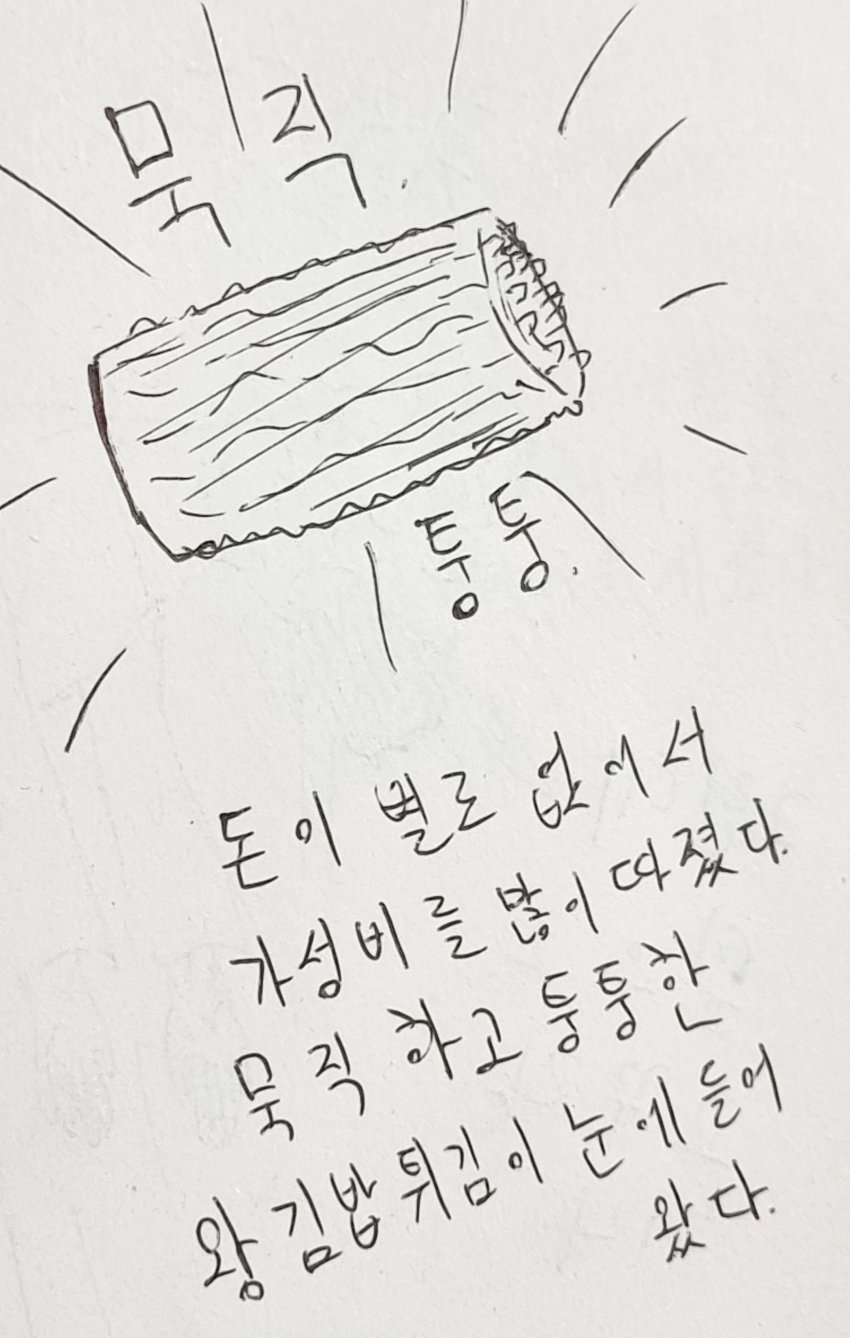 묵직.
퉁퉁.
돈이 별로 없어서
가성비를 많이 따졌다.
묵직하고 퉁퉁한
왕김밥튀김이 눈에 들어
왔다.